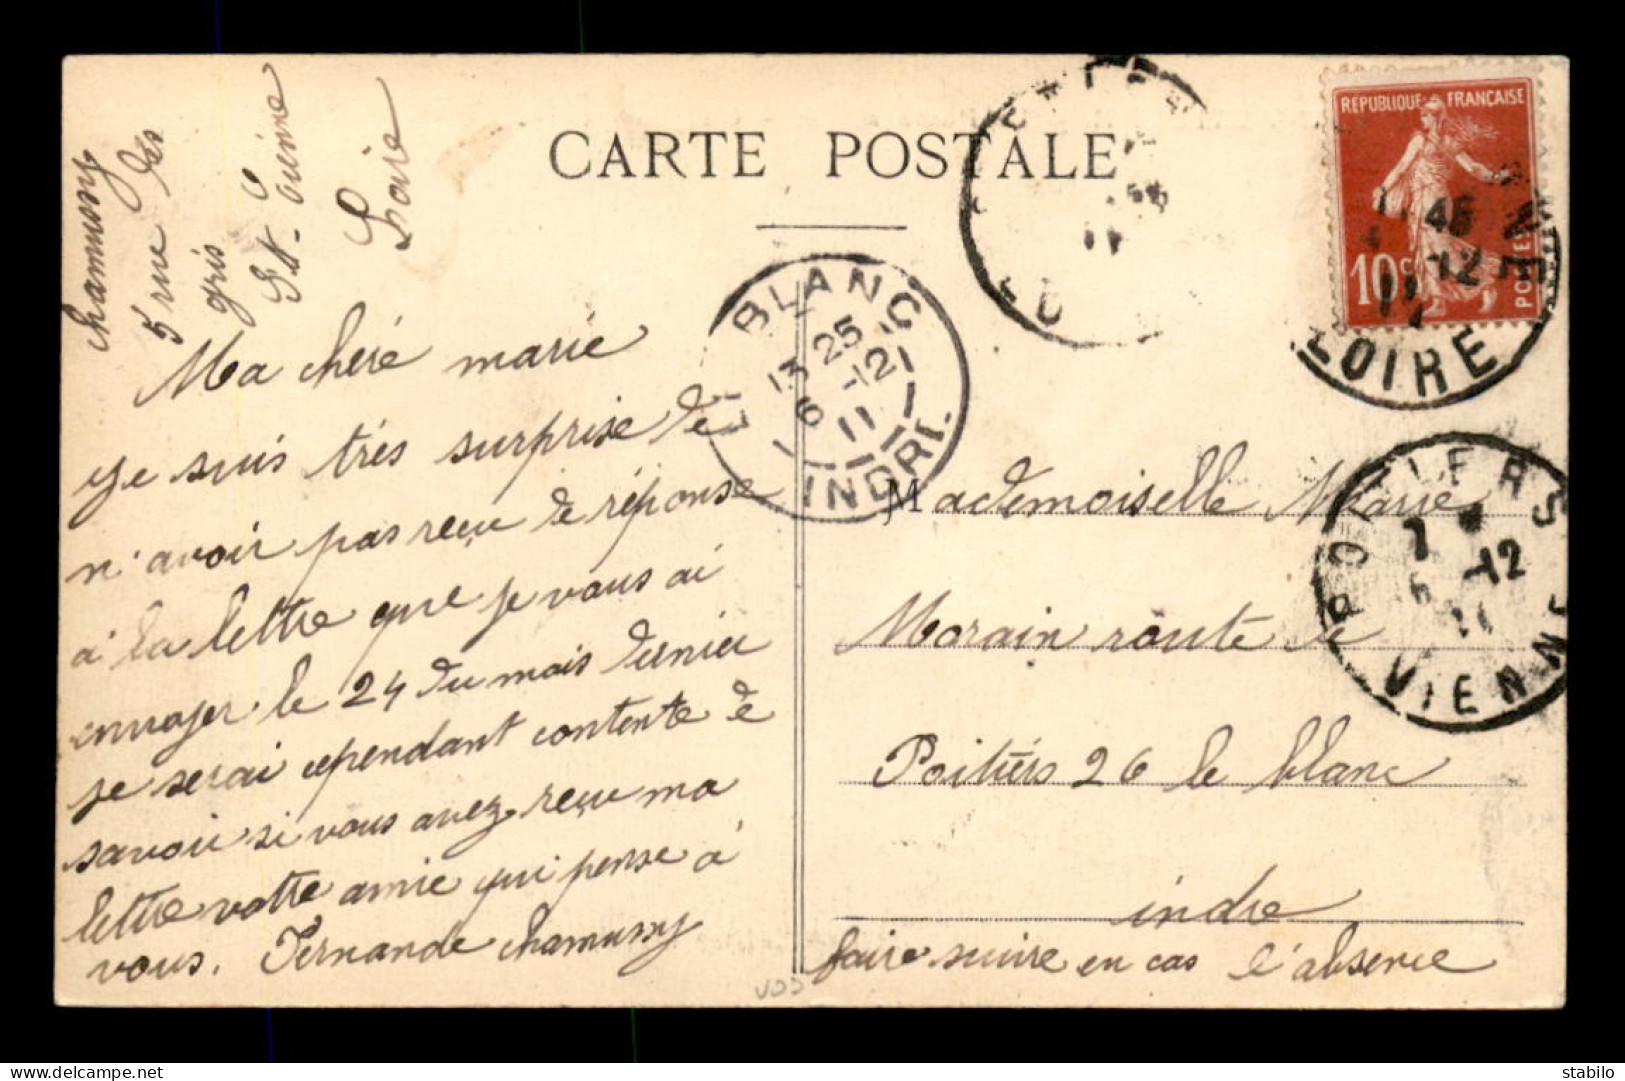 CARTE POSTALE
chamussy
5 rue des
gris
St. Etienne
Loire
Ma chéré marie
je suis très surprise de
n'avoir pas reçu de réponse
a la lettre que je vous ai
envoyer le 24 du mois dernier
je serai cependant contente de
savoir si vous avez reçu ma
lettre votre amie qui pense à
vous. Fernande chamussy
RÉPUBLIQUE FRANÇAISE
10c
POSTES
45
-12
11
LOIRE
LE BLANC
13 25
6 -12
11
INDRE
POITIERS
7
6 -12
11
VIENNE
Mademoiselle Marie
Morain route de
Poitiérs 26 le blanc
indre
faire suivre en cas d'absence
delcampe.net
stabilo